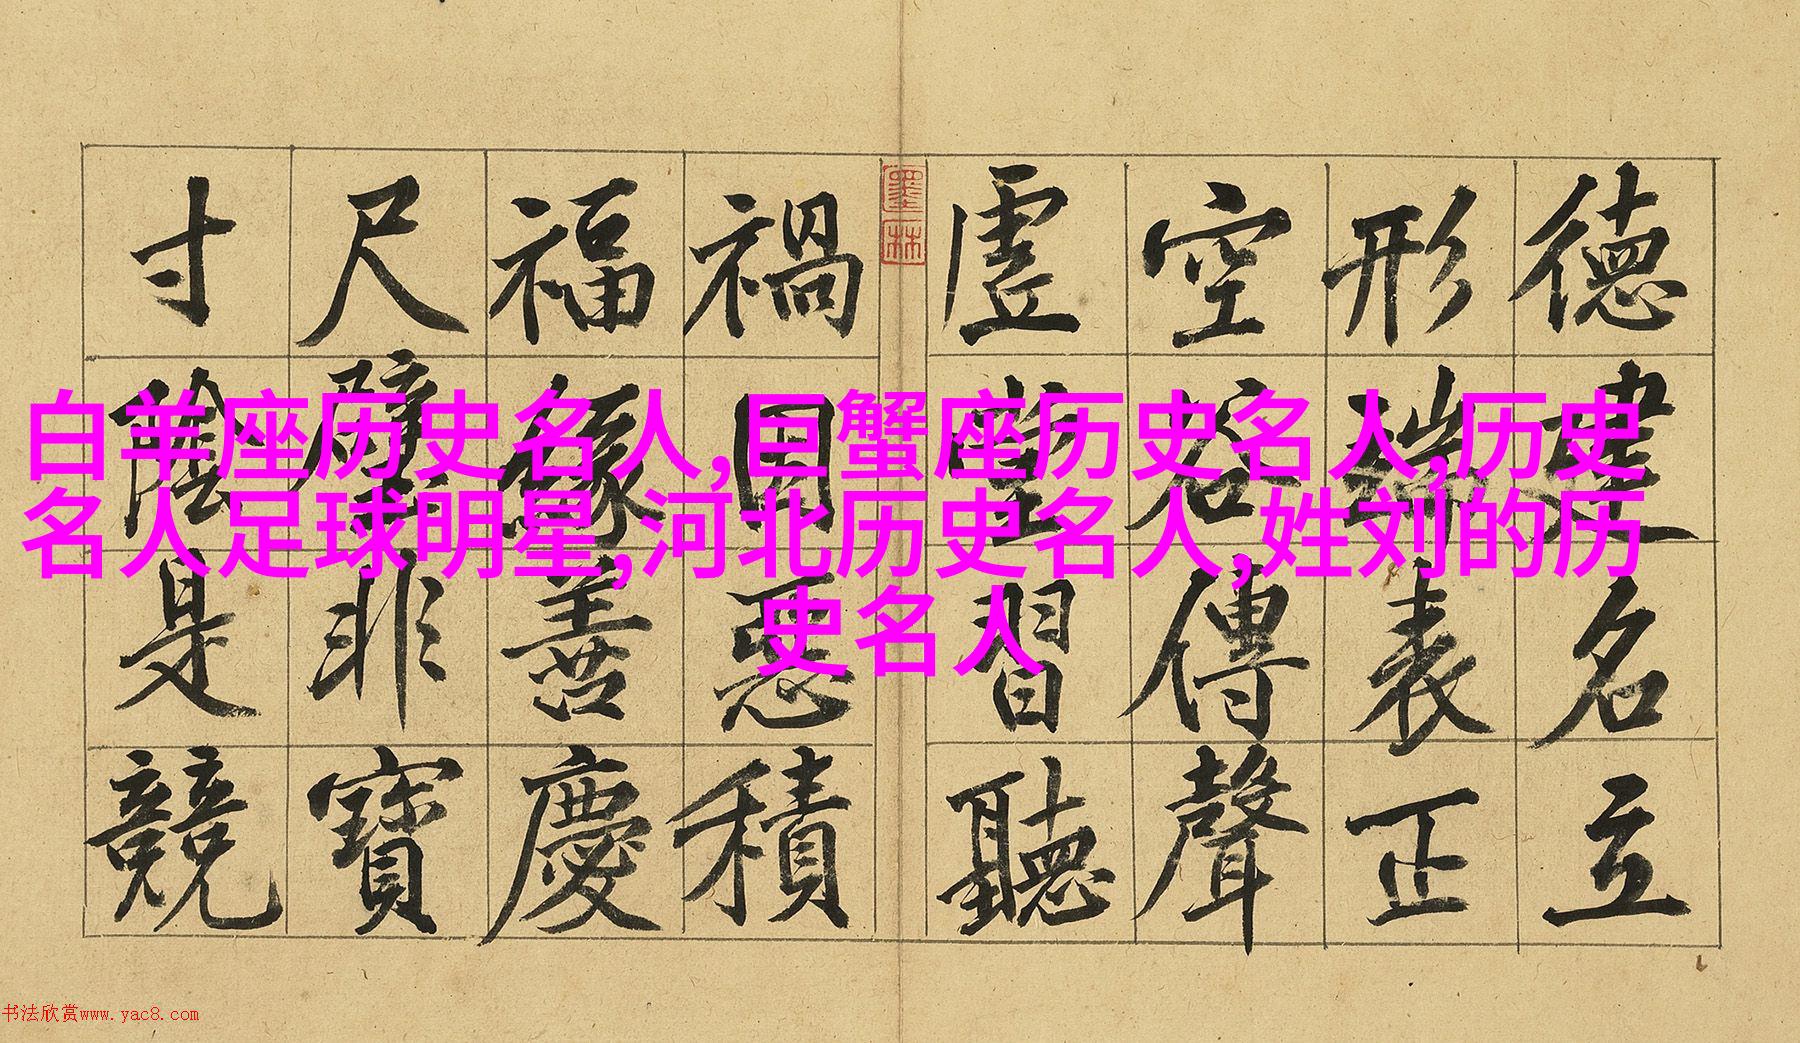 白羊座历史名人,巨蟹座历史名人,历史
名人足球明星,河北历史名人,姓刘的历
史名人
德建名立
形端表正
空谷傳聲
虛堂習聽
墨林
禍因惡積
福緣善慶
尺璧非寶
寸陰是競
书法欣赏www.yac8.com